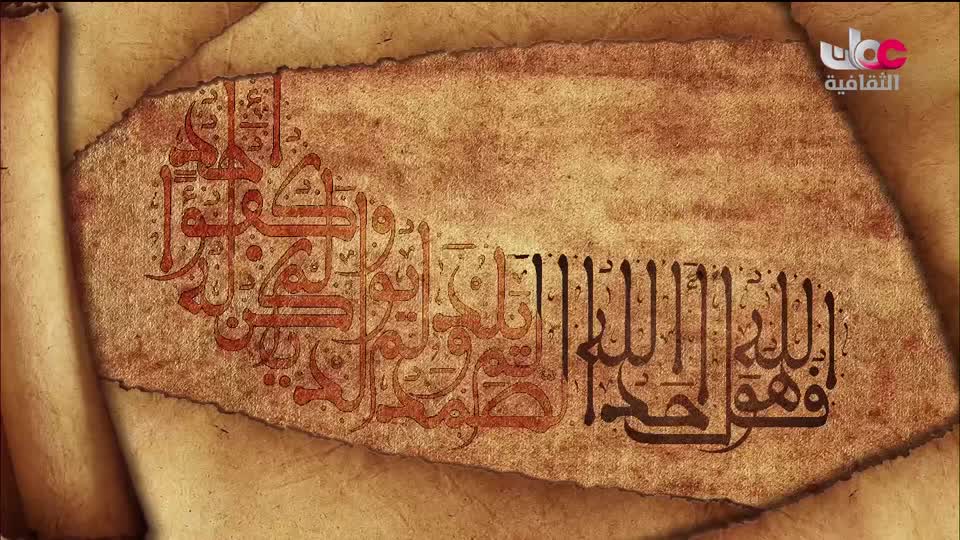 عمان
الثقافية
قل هو الله أحد الله الصمد لم يلد ولم يولد ولم يكن له كفوا أحد